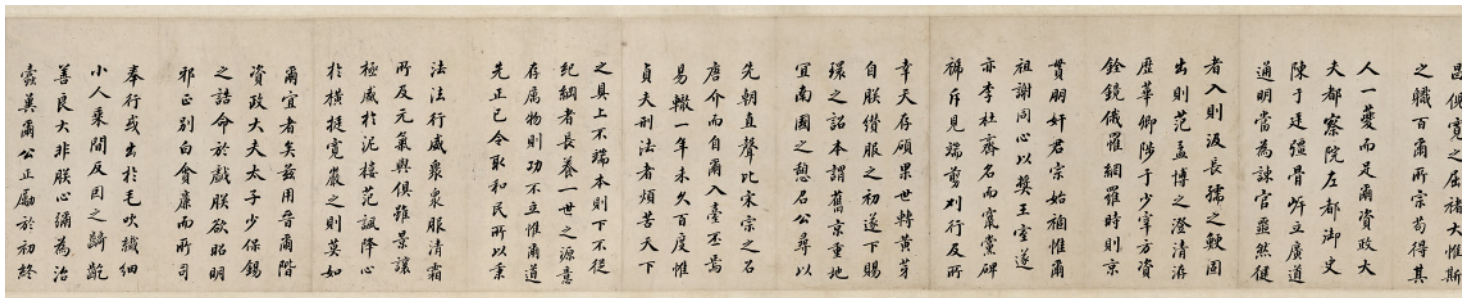 昌倪寬之屈褚大惟斯
之職百爾所宗茍得其
人一夔而足爾資政大
夫都察院左都御史
陳于廷彊骨岞立廣道
通明當為諫官亟然健
者入則汲長孺之鯁固
出則范孟博之澄清洊
歷華卿陟于少宰方資
銓鏡俄罹網羅時則京
貫朋奸君宗始禍惟爾
祖謝同心以獎王室遂
亦李杜齊名而竄黨碑
褫斥見端剪刈行及所
幸天存碩果世轉黃芽
自朕纘服之初遂下賜
環之詔本謂舊京重地
宜南國之憩名公尋以
先朝直聲比宋宗之召
唐介而自爾入臺丕焉
易轍一年未久百度惟
貞夫刑法者煩苦天下
之具上不端本則下不從
紀綱者長養一世之源意
存厲物則功不立惟爾道
先正己令取和民所以秉
法法行威衆衆服清霜
所反元氣與俱雖景讓
極威於泥樓范諷降心
於橫挺寬嚴之則莫如
爾宜者矣茲用晉爾階
資政大夫太子少保錫
之誥命於戲朕欲昭明
邪正別白貪廉而所司
奉行或出於毛吹纖細
小人乘間反因之齮齕
善良大非朕心彌為治
蠹冀爾公正勵於初終